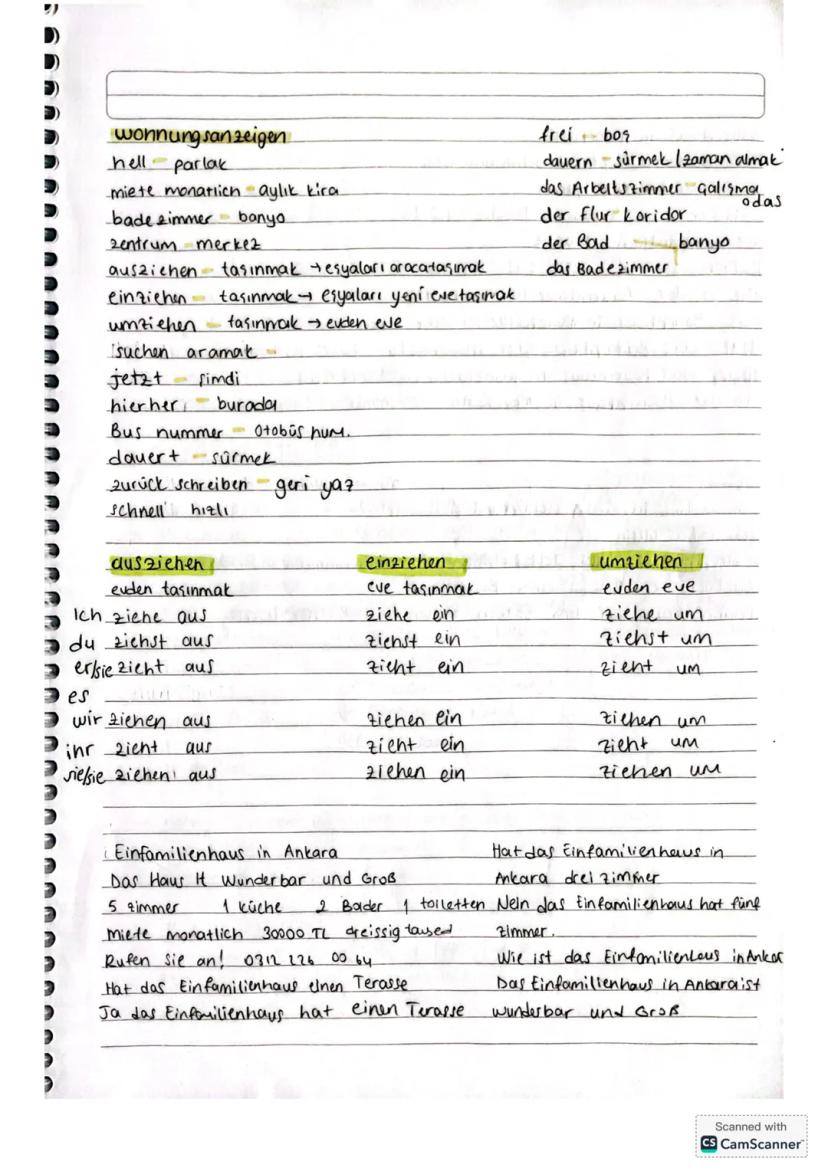 wohnungsanzeigen
hell - parlak
miete monatlich - aylık kira
badezimmer - banyo
zentrum - merkez
ausziehen - taşınmak → eşyaları araca taşımak
einziehen - taşınmak → eşyaları yeni eve taşınak
umziehen - taşınmak → evden eve
suchen aramak -
jetzt - şimdi
hierher - burada
Bus nummer - otobüs num.
dauert - sürmek
zurück schreiben - geri yaz
schnell hızlı
frei - boş
dauern - sürmek (zaman almak
das Arbeitszimmer - çalışma
odas
der Flur koridor
der Bad - banyo
das Badezimmer
ausziehen einziehen umziehen
evden taşınmak eve taşınmak evden eve
Ich ziehe aus ziehe ein ziehe um
du ziehst aus ziehst ein ziehst um
er/sie zieht aus zieht ein zieht um
es
wir ziehen aus ziehen ein ziehen um
ihr zieht aus zieht ein zieht um
sie/sie ziehen aus ziehen ein ziehen um
Einfamilienhaus in Ankara
Das Haus Wunderbar und Groß
5 zimmer 1 küche 2 Bader 1 toiletten
miete monatlich 30000 TL dreissig taused
Rufen Sie an! 0312 226 00 64
Hat das Einfamilienhaus einen Terasse
Ja das Einfamilienhaus hat einen Terasse
Hat das Einfamilienhaus in
Ankara drei zimmer
Nein das Einfamilienhaus hat fünf
zimmer.
Wie ist das Einfamilienhaus in Ankar
Das Einfamilienhaus in Ankara ist
wunderbar und Groß
Scanned with
CS CamScanner